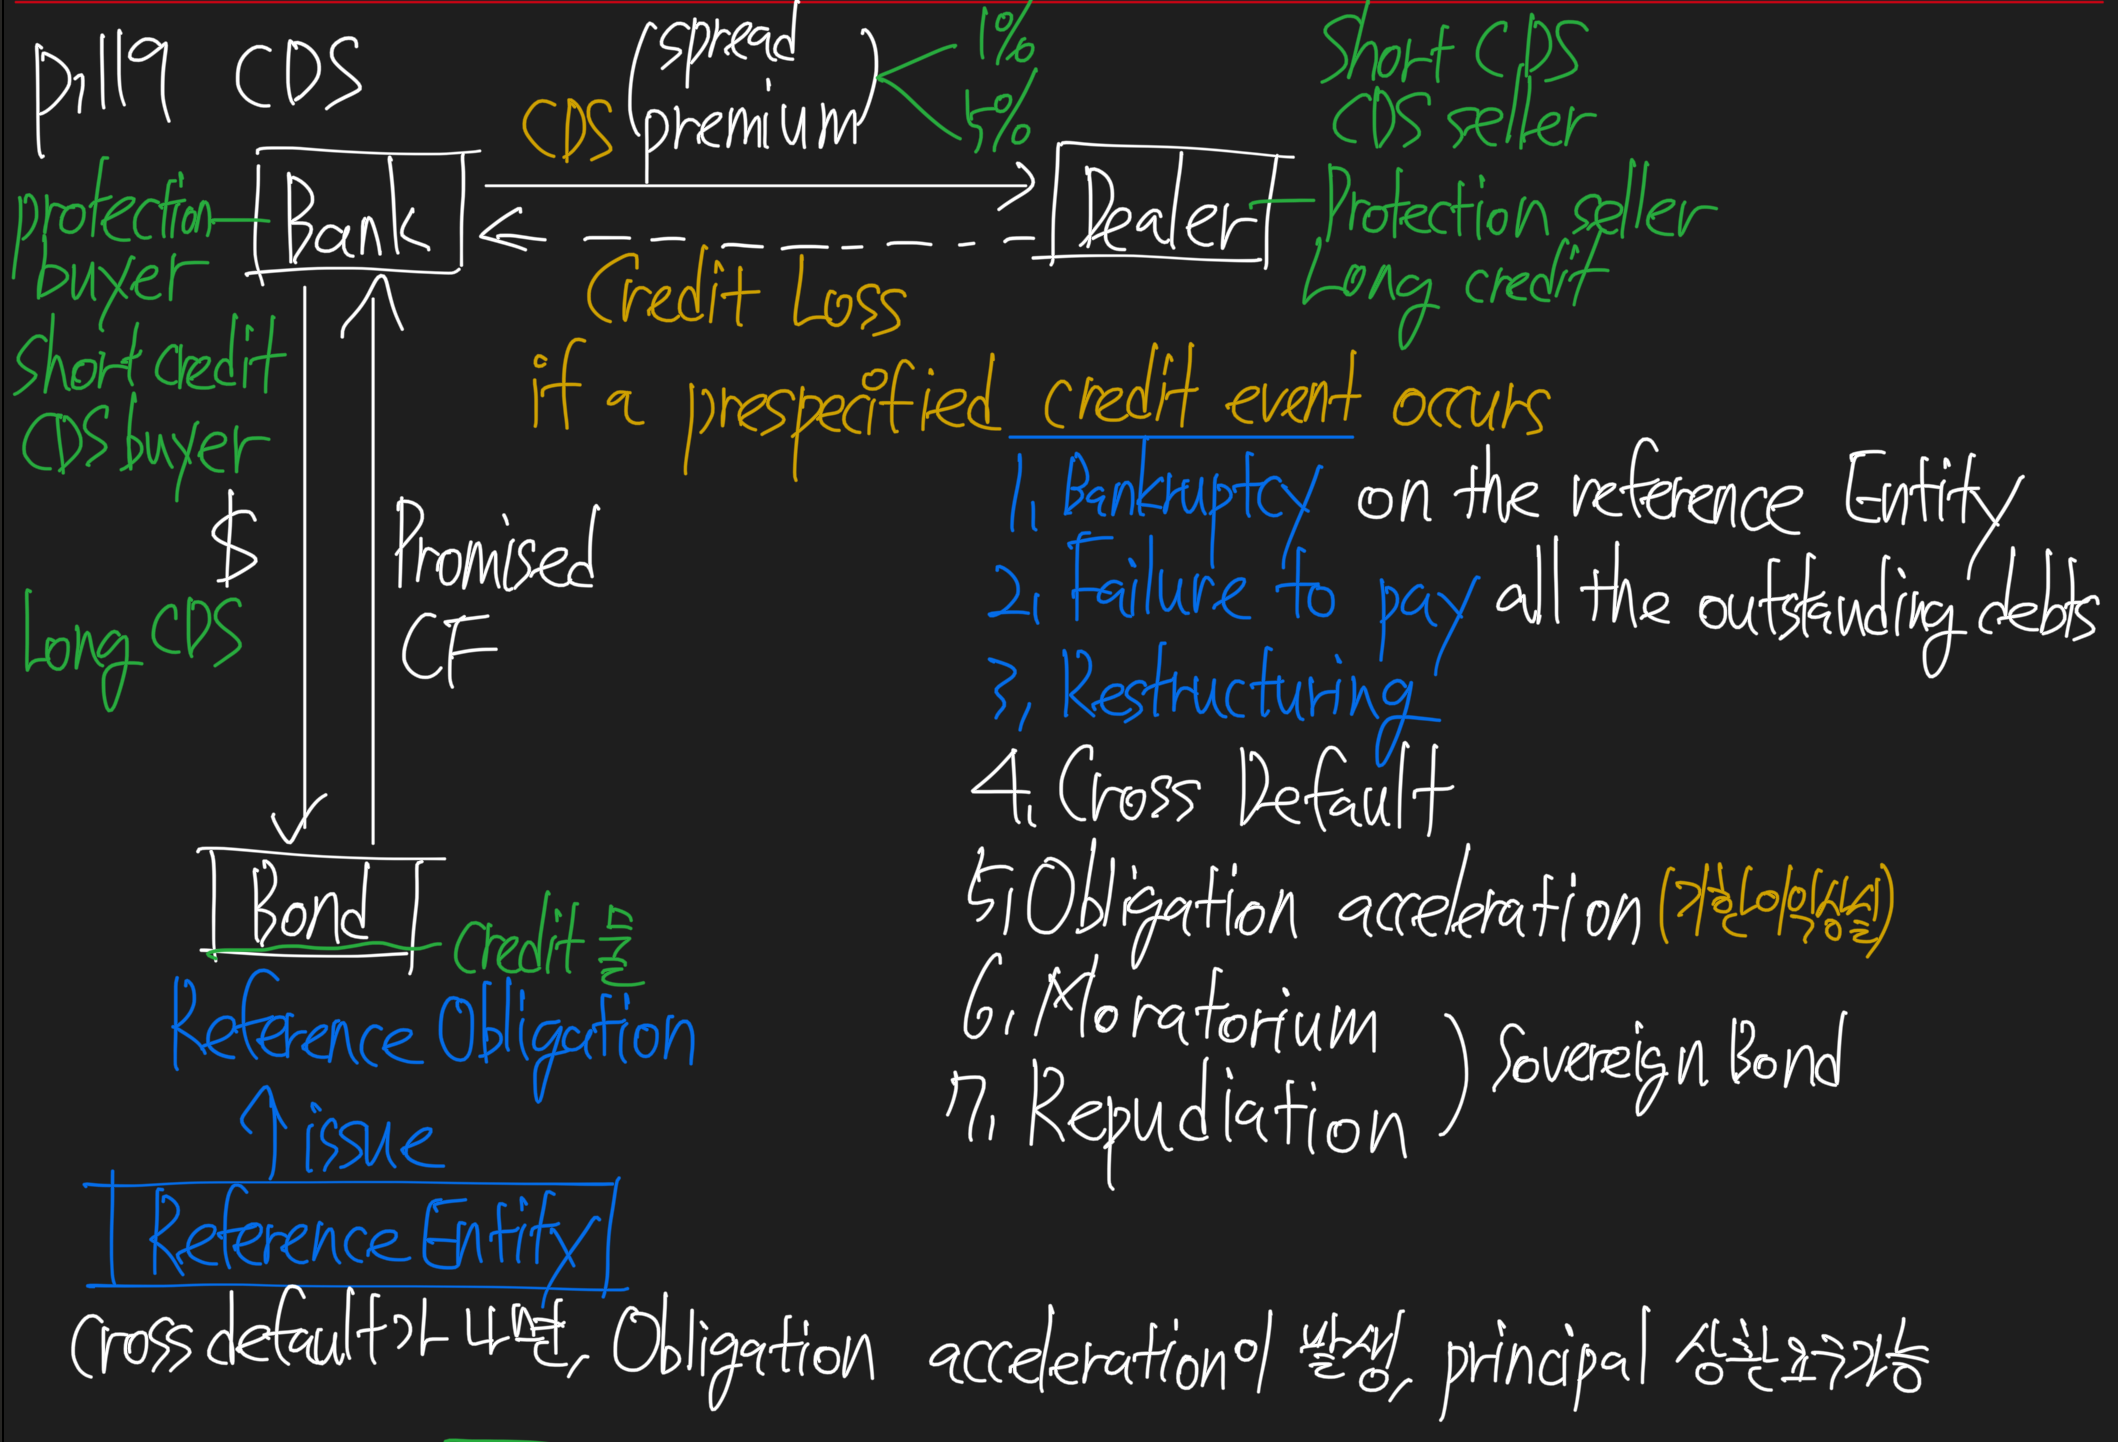 p.119 CDS
CDS (spread premium) 1% 5%
Short CDS
CDS seller
Protection seller
Long credit
protection buyer
Short credit
CDS buyer
Long CDS
Bank
Dealer
Credit Loss
if a prespecified credit event occurs
1. Bankruptcy on the reference Entity
2. Failure to pay all the outstanding debts
3. Restructuring
4. Cross Default
5. Obligation acceleration (기한이익상실)
6. Moratorium
7. Repudiation
) Sovereign Bond
$
Promised CF
Bond
Credit 물
Reference Obligation
↑ issue
Reference Entity
Cross default가 나면, Obligation acceleration이 발생, principal 상환요구가능